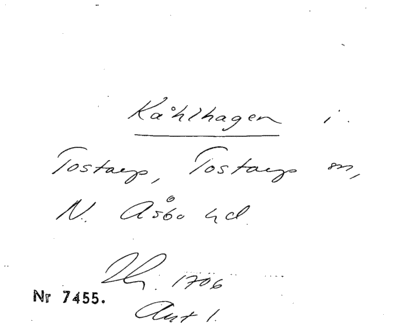 Kåhlhagen i
Tostarp, Tostarp sn,
N. Åsbo hd.
Jb. 1706
Nr 7455.
Avt 1.